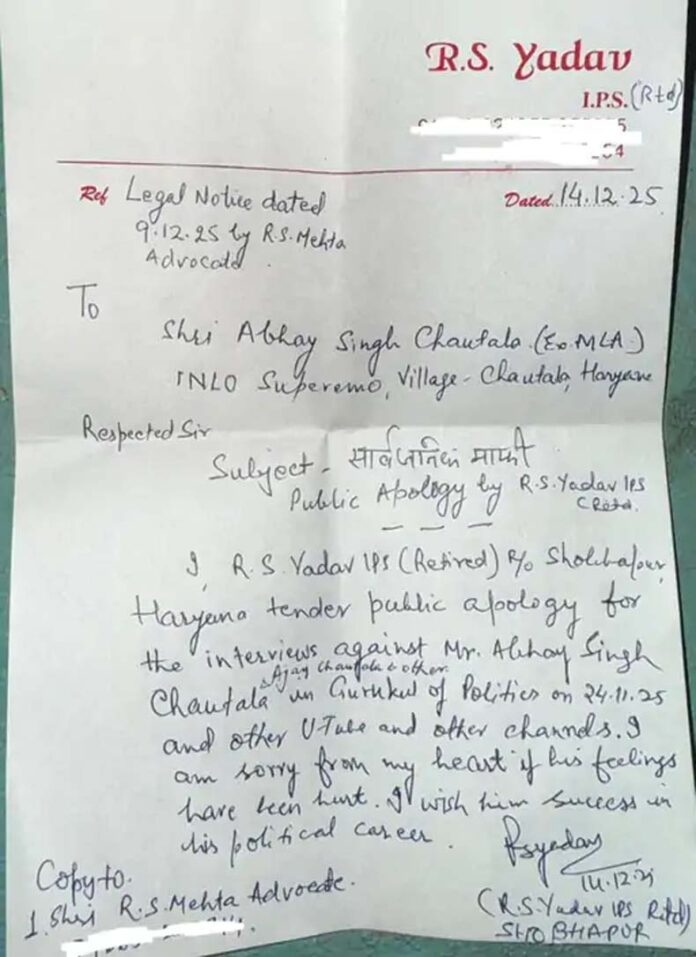 R.S. Yadav
I.P.S. (Rtd)
5
4
Ref Legal Notice dated
9.12.25 by R.S. Mehta
Advocate.
Dated 14.12.25
To
Shri Abhay Singh Chautala (Ex.MLA.)
INLO Superemo, Village- Chautala, Haryana
Respected Sir
Subject - सार्वजनिक माफी
Public Apology by R.S. Yadav IPS
(Retd.
I, R.S. Yadav IPS (Retired) R/o Shobhapur,
Haryana tender public apology for
the interviews against Mr. Abhay Singh
Ajay Chautala & other
Chautala in Gurukul of Politics on 24.11.25
and other U-Tube and other channels. I
am sorry from my heart if his feelings
have been hurt. I wish him success in
his political career.
Rsyadav
14.12.25
(R.S. Yadav IPS Retd)
SHOBHAPUR
Copy to.
1. Shri R.S. Mehta Advocate.